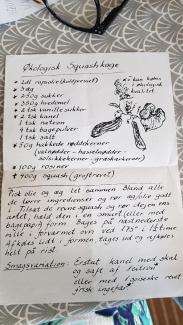 Økologisk Squashkage
2 dl rapsolie (koldpresset)
3 æg
250g sukker
350g hvedemel
2 tsk vanille sukker
2 tsk kanel
1 tsk natron
4 tsk bagepulver
1 tsk salt
50g hakkede nøddekerner
(valnødder - hasselnødder -
solsikkekerner - græskarkerner)
100g rosiner
400g squash (groftrevet)
kan købes
i økologisk
kvalitet
Pisk olie og æg let sammen. Bland alle
de tørre ingredienser og rør æg/olie godt
i. Tilsæt de revne squash og rør dejen ens-
artet, hæld den i en smurt (eller med
bagepapir) form. Bages på næstnederste
rille i forvarmet ovn ved 175° i 1 time
Afkøles lidt i formen, tages ud og afkøles
helt på rist.
Smagsvariation: Erstat kanel med skal
og saft af 1 citron
eller med 1 spiseske revet
frisk ingefær